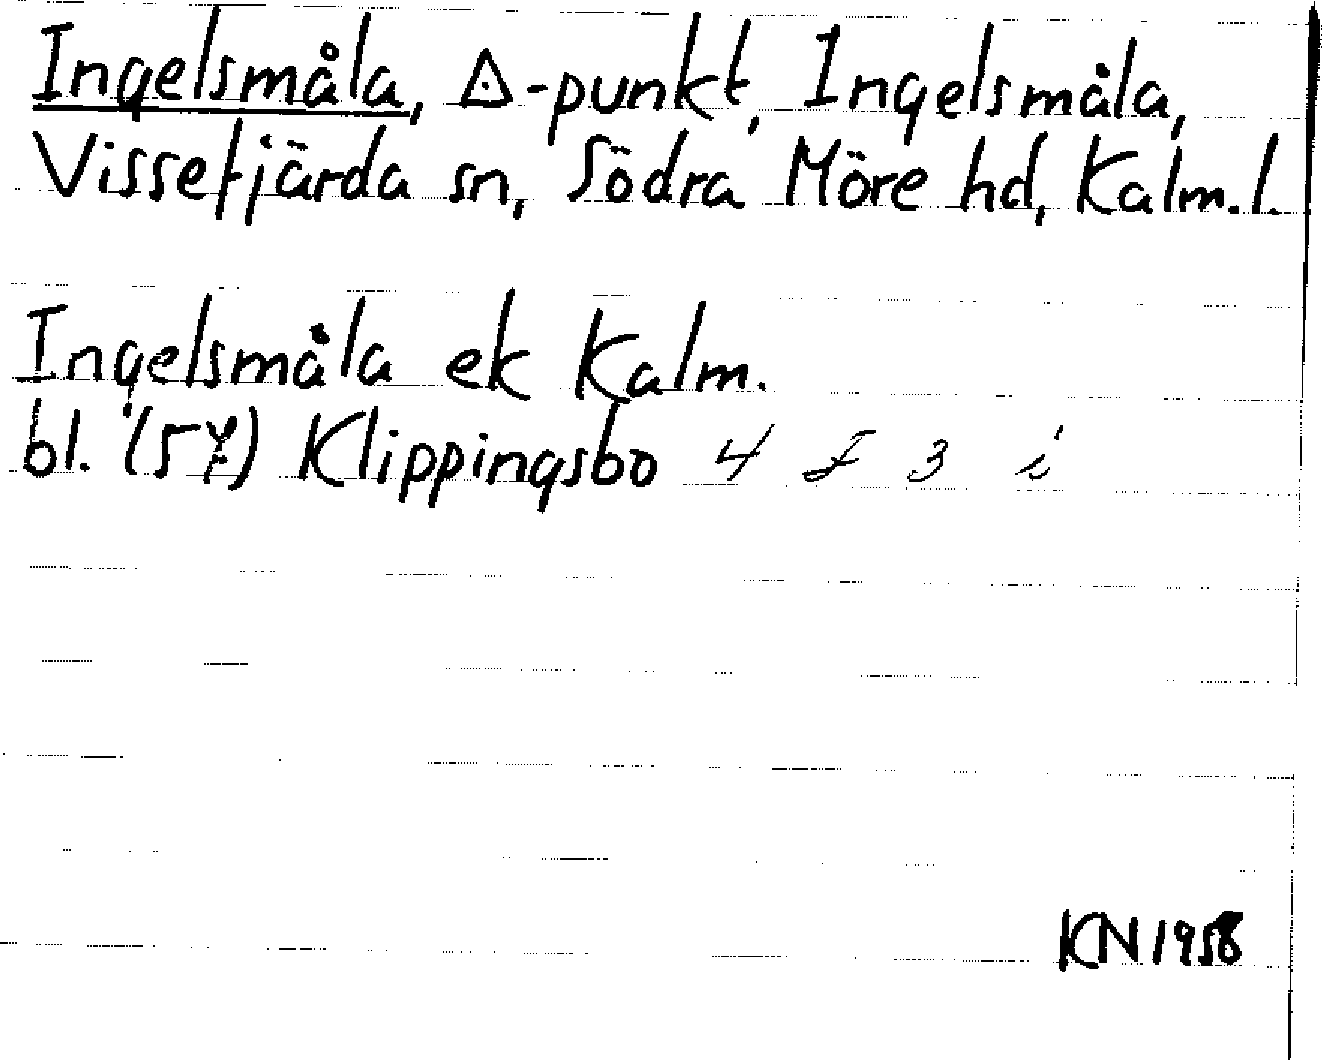 Ingelsmåla, △-punkt, Ingelsmåla,
Vissefjärda sn, Södra Möre hd, Kalm. l.
Ingelsmåla ek Kalm.
bl. Klippingsbo 4 F 3 i
KN 1958